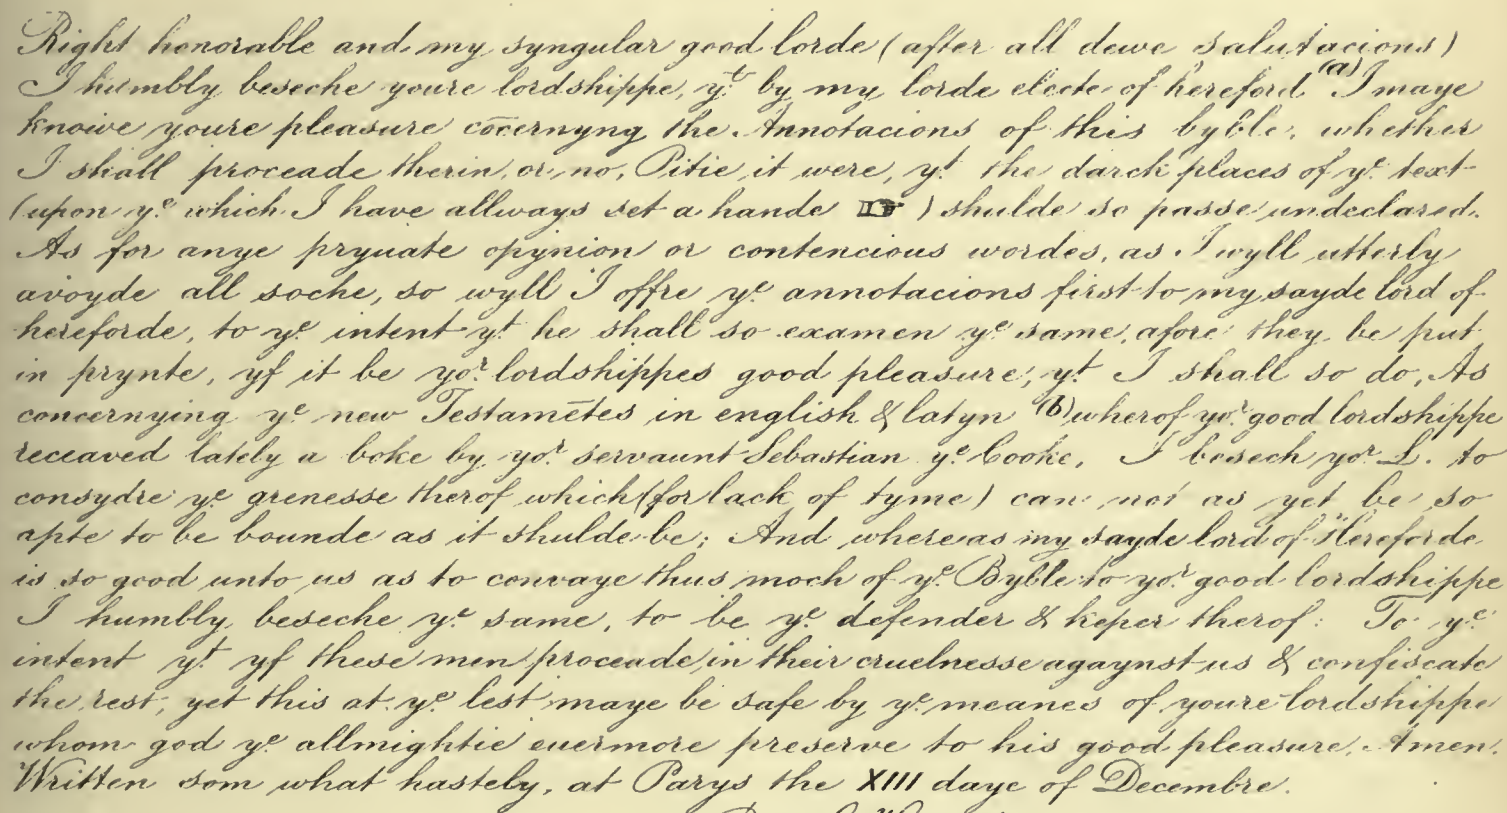 Right honorable and my syngular good lorde (after all dewe salutacions)
I humbly beseche youre lordshippe, yt by my lorde electe of hereford (a) I maye
knowe youre pleasure cōcernyng the Annotacions of this byble, whether
I shall proceade therin, or no, Pitie it were, yt the darck places of ye text
(upon ye which I have allways set a hande ☞ ) shulde so passe undeclared.
As for anye pryuate opynion or contencious wordes, as I wyll utterly
avoyde all soche, so wyll I offre ye annotacions first to my sayde lord of
hereforde, to ye intent yt he shall so examen ye same, afore they be put
in prynte, yf it be yor lordshippes good pleasure, yt I shall so do, As
concernying ye new Testamētes in english & latyn (b) wherof yor good lordshippe
receaved lately a boke by yor servaunt Sebastian ye Cooke, I besech yor L. to
consydre ye grenesse therof which (for lack of tyme) can not as yet be so
apte to be bounde as it shulde be; And whereas my sayde lord of Hereforde
is so good unto us as to convaye thus moch of ye Byble to yor good lordshippe
I humbly beseche ye same, to be ye defender & keper therof: To ye
intent yt yf these men proceade in their cruelnesse agaynst us & confiscate
the rest, yet this at ye lest maye be safe by ye meanes of youre lordshippe
whom god ye allmightie euermore preserve to his good pleasure. Amen.
Written som what hastely, at Parys the XIII daye of Decembre.